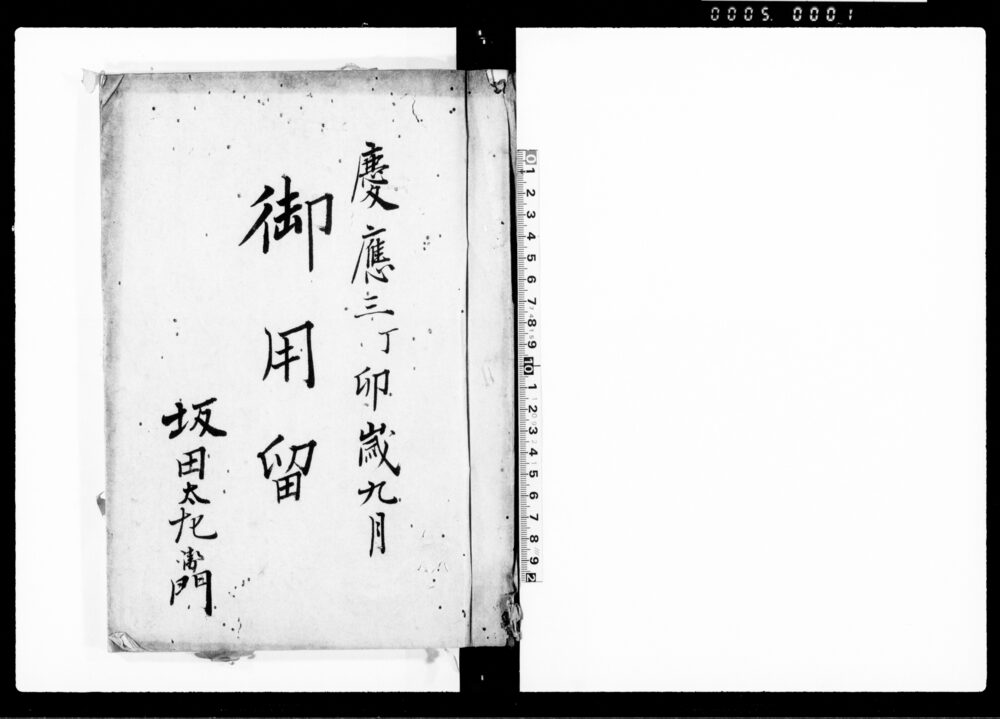 0005. 0001
慶應三丁卯歳九月
御用留
坂田太左衛門
0 1 2 3 4 5 6 7 8 9 10 1 2 3 4 5 6 7 8 9 2